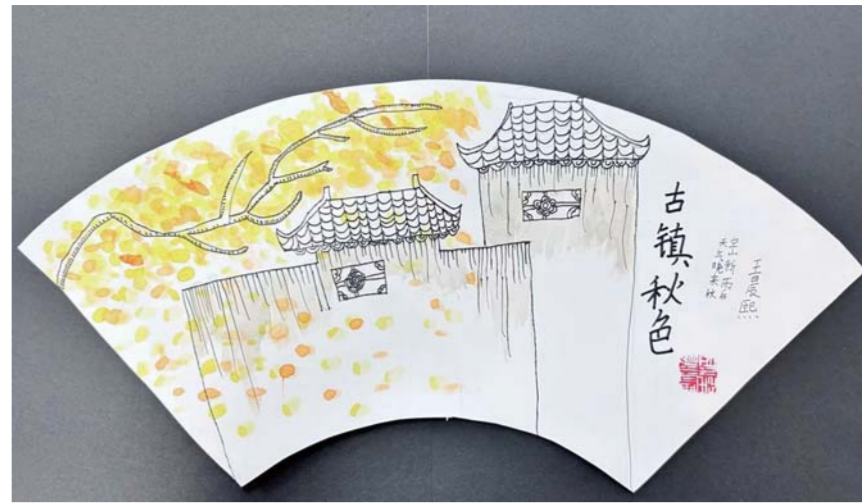 古镇秋色
空山新雨后
天气晚来秋
王晨熙